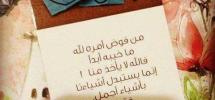 من فوض أمره لله
ما خيبه أبدا
فالله لا يأخذ منا !
إنما يستبدل أشياءنا
بأشياء أجمل